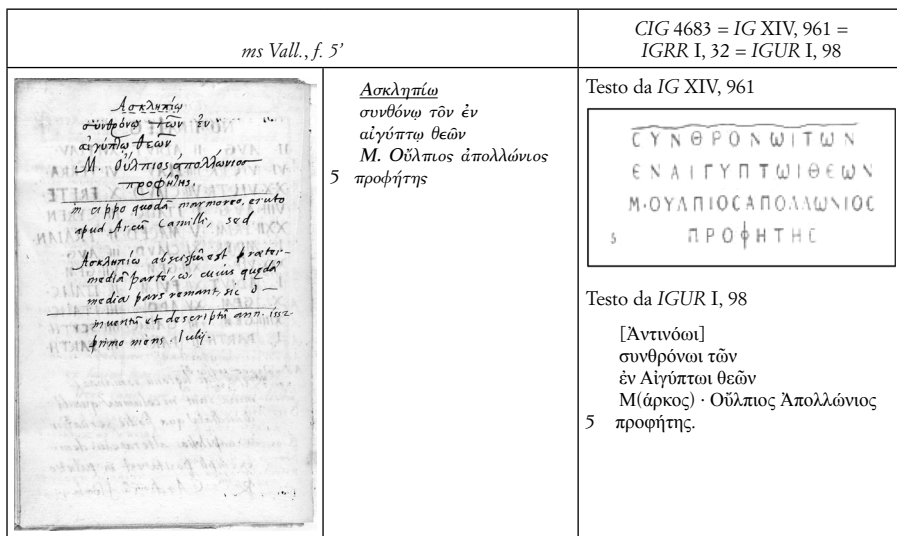 ms Vall., f. 5'
CIG 4683 = IG XIV, 961 =
IGRR I, 32 = IGUR I, 98
Ασκληπίω
σύνθρόνω τῶν ἐν
αἰγύπτω θεῶν
Μ. Οὔλπιος ἀπολλώνιος
προφήτης.
in cippo quodā marmoreo, eruto
apud Arcū Camilli, sed
Ασκληπίω abscissū est præter-
mediā partē, ω, cuius quędā
media pars remant, sic
inventū et descriptū ann. 1552
primo mens. Iulij.
Ασκληπίω
συνθόνῳ τõν ἐν
αἰγύπτῳ θεῶν
Μ. Οὔλπιος ἀπολλώνιος
5 προφήτης
Testo da IG XIV, 961
ϹΥΝΘΡΟΝΩΙΤΩΝ
ЄΝΑΙΓΥΠΤΩΙΘЄΩΝ
Μ·ΟΥΛΠΙΟϹΑΠΟΛΛΩΝΙΟϹ
5 ΠΡΟΦΗΤΗϹ
Testo da IGUR I, 98
[Ἀντινόωι]
συνθρόνωι τῶν
ἐν Αἰγύπτωι θεῶν
Μ(άρκος) · Οὔλπιος Ἀπολλώνιος
5 προφήτης.